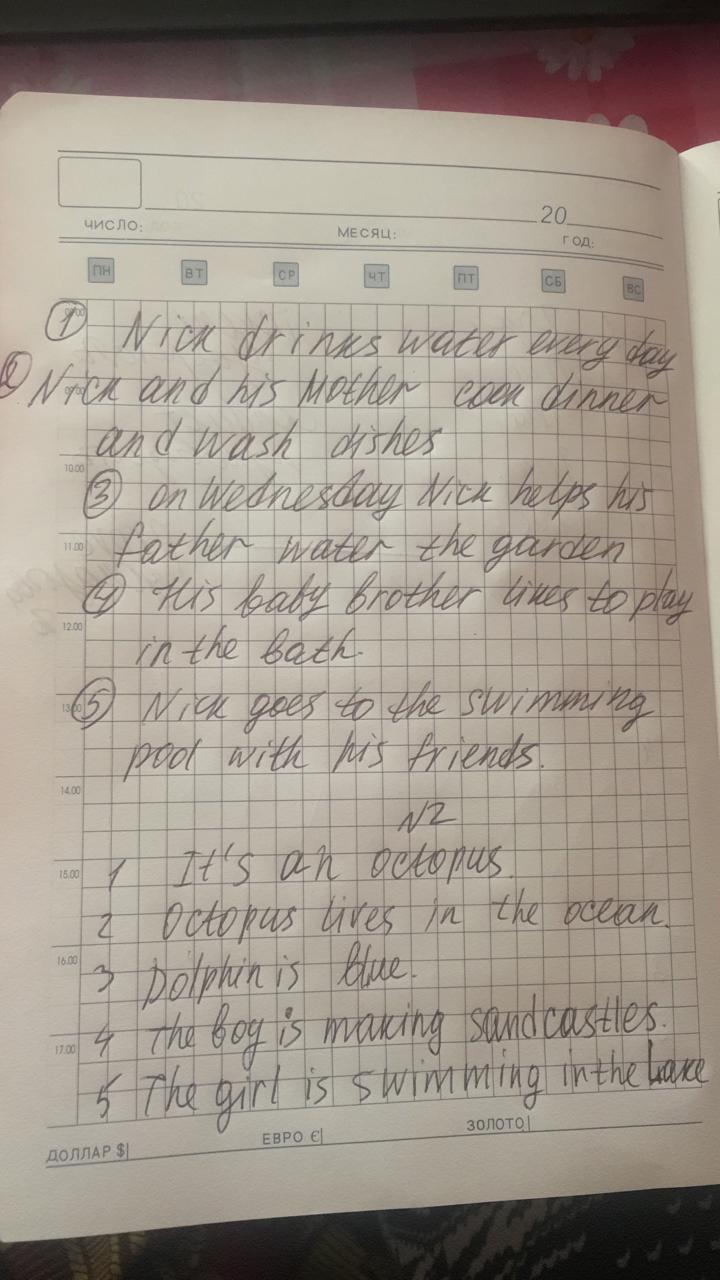 20
ЧИСЛО: МЕСЯЦ: ГОД:
ПН ВТ СР ЧТ ПТ СБ ВС
1 Nick drinks water every day
2 Nick and his Mother cook dinner
and wash dishes
10.00
3 on Wednesday Nick helps his
11.00
father water the garden
4 His baby brother likes to play
12.00
in the bath.
13.00
5 Nick goes to the swimming
pool with his friends.
14.00
N2
15.00
1 It's an octopus.
2 Octopus lives in the ocean.
16.00
3 Dolphin is blue.
4 The boy is making sandcastles.
17.00
5 The girl is swimming in the Lake
ДОЛЛАР $| ЕВРО €| ЗОЛОТО|